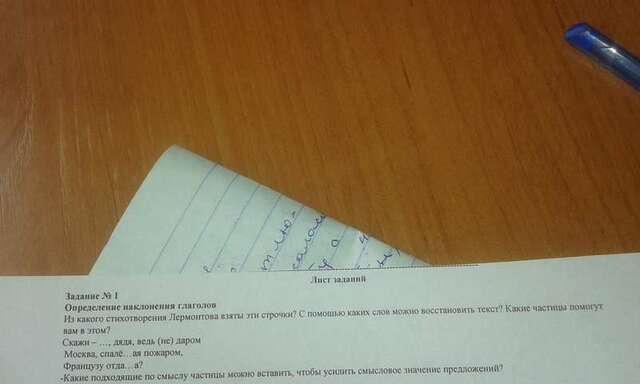 Лист заданий
Задание № 1
Определение наклонения глаголов
Из какого стихотворения Лермонтова взяты эти строчки? С помощью каких слов можно восстановить текст? Какие частицы помогут
вам в этом?
Скажи – …, дядя, ведь (не) даром
Москва, спалё…ая пожаром,
Французу отда…а?
-Какие подходящие по смыслу частицы можно вставить, чтобы усилить смысловое значение предложений?